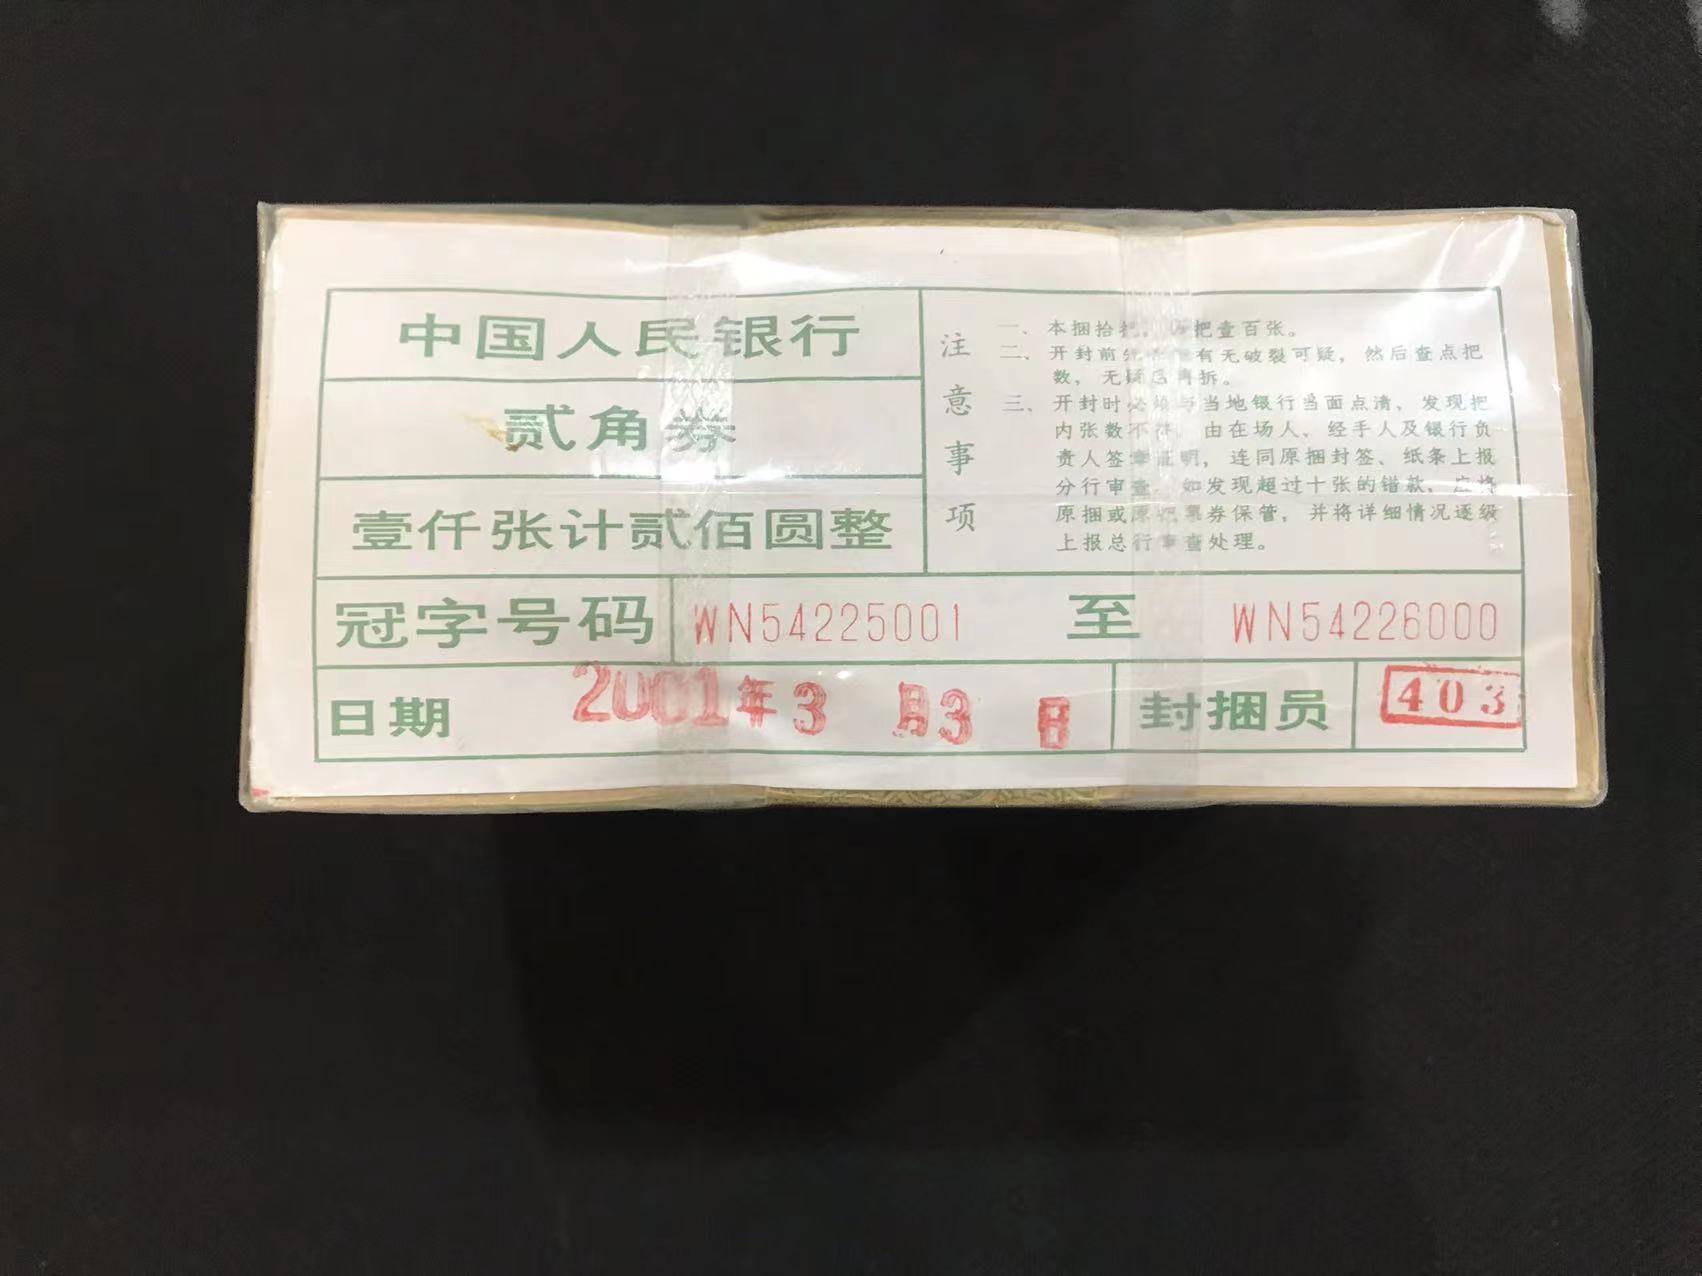 中国人民银行
贰角券
壹仟张计贰佰圆整
注意事项
一、本捆拾把,每把壹百张。
二、开封前先 有无破裂可疑,然后查点把
数,无疑后再拆。
三、开封时必须与当地银行当面点清,发现把
内张数不符,由在场人、经手人及银行负
责人签章证明,连同原捆封签、纸条上报
分行审查,如发现超过十张的错款,应将
原捆或原把票券保管,并将详细情况逐级
上报总行审查处理。
冠字号码 WN54225001 至 WN54226000
日期 2001年3月3日 封捆员 403